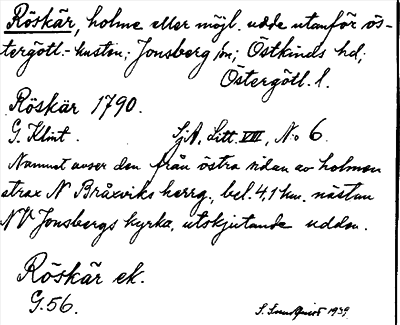 Röskär, holme eller möjl. udde utanför ös-
tergötl.-kusten; Jonsberg sn; Östkinds hd;
Östergötl. l.
Röskär 1790.
G. Klint. SjA, Litt. VIII, No 6.
Namnet avser den från östra sidan av holmen
strax N Bråxviks herrg., bel. 4,1 km. nästan
NV Jonsbergs kyrka, utskjutande udden.
Röskär ek.
G. 56.
S. 1939